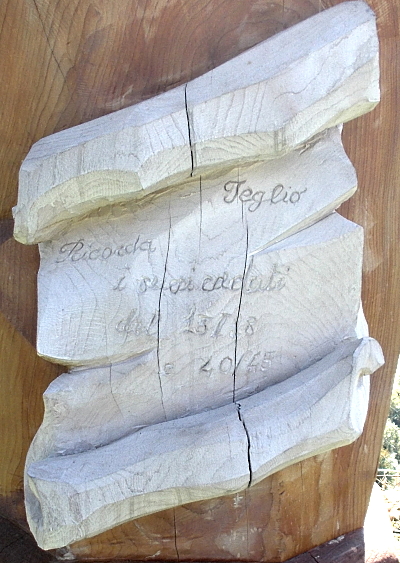 Teglio
Ricorda
i suoi caduti
del 15/18
e 40/45